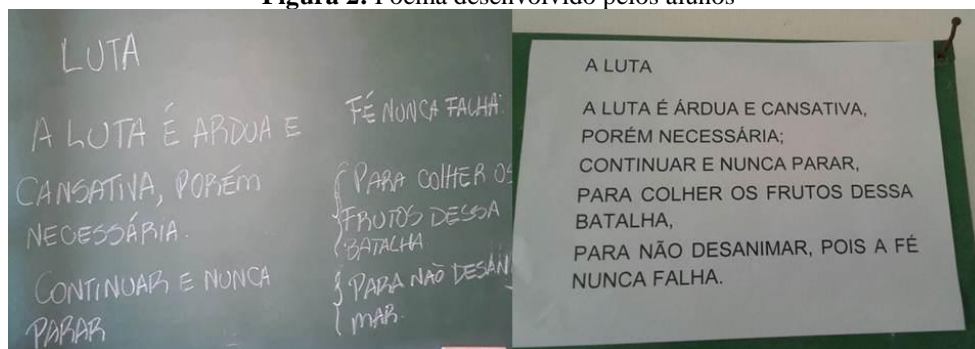 Figura 2: Poema desenvolvido pelos alunos
LUTA
A LUTA É ARDUA E
CANSATIVA, PORÉM
NECESSÁRIA.
CONTINUAR E NUNCA
PARAR
FÉ NUNCA FALHA.
PARA COLHER OS
FRUTOS DESSA
BATALHA
PARA NÃO DESANI
MAR.
A LUTA
A LUTA É ÁRDUA E CANSATIVA,
PORÉM NECESSÁRIA;
CONTINUAR E NUNCA PARAR,
PARA COLHER OS FRUTOS DESSA
BATALHA,
PARA NÃO DESANIMAR, POIS A FÉ
NUNCA FALHA.